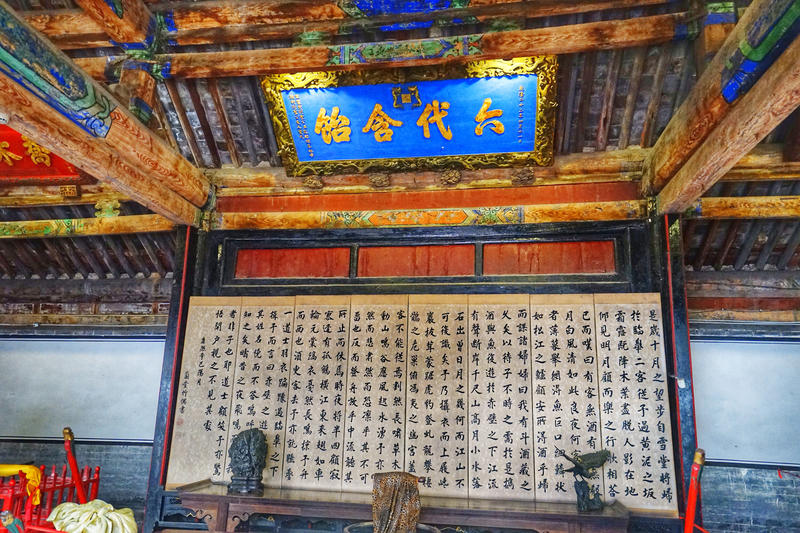 六代含飴
是歲十月之望步自雪堂將歸
於臨皋二客從予過黃泥之坂
霜露既降木葉盡脫人影在地
仰見明月顧而樂之行歌相答
已而嘆曰有客無酒有酒無
月白風清如此良夜何客
者薄暮舉網得魚巨口細鱗狀
如松江之鱸顧安所得酒乎歸
而謀諸婦婦曰我有斗酒藏之
久矣以待子不時之需於是攜
酒與魚復遊於赤壁之下江流
有聲斷岸千尺山高月小水落
石出曾日月之幾何而江山不
可復識矣予乃攝衣而上履巉
巖披蒙茸踞虎豹登虬龍攀棲
鶻之危巢俯馮夷之幽宮蓋
客不能從焉劃然長嘯草木
動山鳴谷應風起水湧予亦
然而悲肅然而恐凜乎其不可
留也反而登舟放乎中流聽其
所止而休焉時夜將半四顧寂
寥適有孤鶴橫江東來翅如車
輪元裳縞衣戛然長鳴掠予舟
而西也須臾客去予亦就睡夢
一道士羽衣蹁躚過臨皋之下
揖予而言曰赤壁之遊
其姓名俛而不答嗚呼
知之矣疇昔之夜飛鳴
者非子也耶道士顧笑予亦驚
悟開戶視之不見其處
康熙辛巳陽月